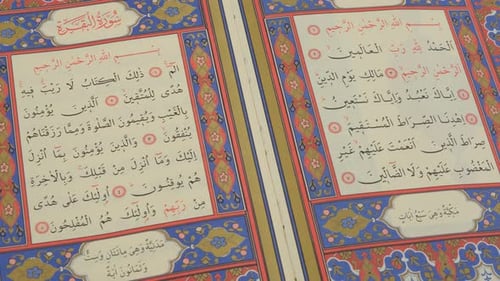 بِسْمِ اللّٰهِ الرَّحْمٰنِ الرَّحِيمِ ١
اَلْحَمْدُ لِلّٰهِ رَبِّ الْعَالَمِينَ ٢
اَلرَّحْمٰنِ الرَّحِيمِ ٣ مَالِكِ يَوْمِ الدِّينِ
٤ اِيَّاكَ نَعْبُدُ وَاِيَّاكَ نَسْتَعِينُ
٥ اِهْدِنَا الصِّرَاطَ الْمُسْتَقِيمَ ٦
صِرَاطَ الَّذِينَ اَنْعَمْتَ عَلَيْهِمْ غَيْرِ
الْمَغْضُوبِ عَلَيْهِمْ وَلَا الضَّالِّينَ ٧
مَكِّيَّةٌ وَهِيَ سَبْعُ اٰيَاتٍ
سُورَةُ الْبَقَرَةِ
بِسْمِ اللّٰهِ الرَّحْمٰنِ الرَّحِيمِ
الٓمٓ ١ ذٰلِكَ الْكِتَابُ لَا رَيْبَ فِيهِ
هُدًى لِلْمُتَّقِينَ ٢ اَلَّذِينَ يُؤْمِنُونَ
بِالْغَيْبِ وَيُقِيمُونَ الصَّلٰوةَ وَمِمَّا رَزَقْنَاهُمْ
يُنْفِقُونَ ٣ وَالَّذِينَ يُؤْمِنُونَ بِمَا اُنْزِلَ
اِلَيْكَ وَمَا اُنْزِلَ مِنْ قَبْلِكَ وَبِالْاٰخِرَةِ
هُمْ يُوقِنُونَ ٤ اُولٰٓئِكَ عَلٰى هُدًى
مِنْ رَبِّهِمْ وَاُولٰٓئِكَ هُمُ الْمُفْلِحُونَ ٥
مَدَنِيَّةٌ وَهِيَ مِائَتَانِ وَسِتٌّ
وَثَمَانُونَ اٰيَةً